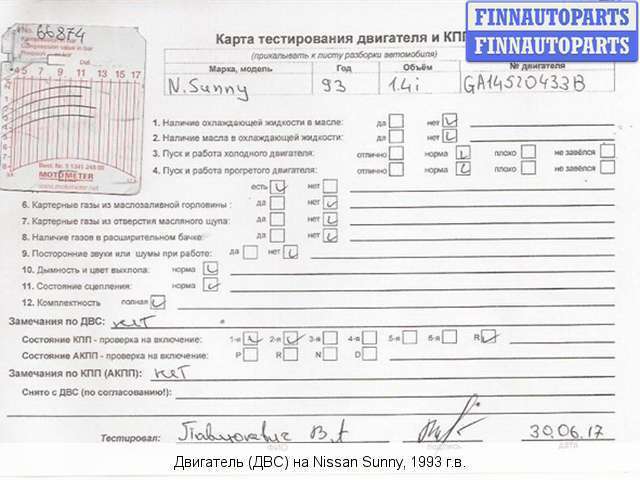 No. 66874
FINNAUTOPARTS
FINNAUTOPARTS
Карта тестирования двигателя и КПП
(прикалывать к листу разборки автомобиля)
Марка, модель Год Объём № двигателя
N.Sunny 93 1.4i GA14520433B
1. Наличие охлаждающей жидкости в масле: да нет
2. Наличие масла в охлаждающей жидкости: да нет
3. Пуск и работа холодного двигателя: отлично норма плохо не завёлся
4. Пуск и работа прогретого двигателя: отлично норма плохо не завёлся
есть нет
6. Картерные газы из маслозаливной горловины : да нет
7. Картерные газы из отверстия масляного щупа: да нет
8. Наличие газов в расширительном бачке: да нет
9. Посторонние звуки или шумы при работе: да нет
10. Дымность и цвет выхлопа: норма
11. Состояние сцепления: норма
12. Комплектность полная
Замечания по ДВС: нет
Состояние КПП - проверка на включение: 1-я 2-я 3-я 4-я 5-я 6-я R
Состояние АКПП - проверка на включение: P R N D
Замечания по КПП (АКПП): нет
Снято с ДВС (по согласованию!):
Тестировал: 30.06.17
ФИО подпись дата
4 5 7 9 11 13 15 17
MOTOMETER
www.motometer.net
Двигатель (ДВС) на Nissan Sunny, 1993 г.в.